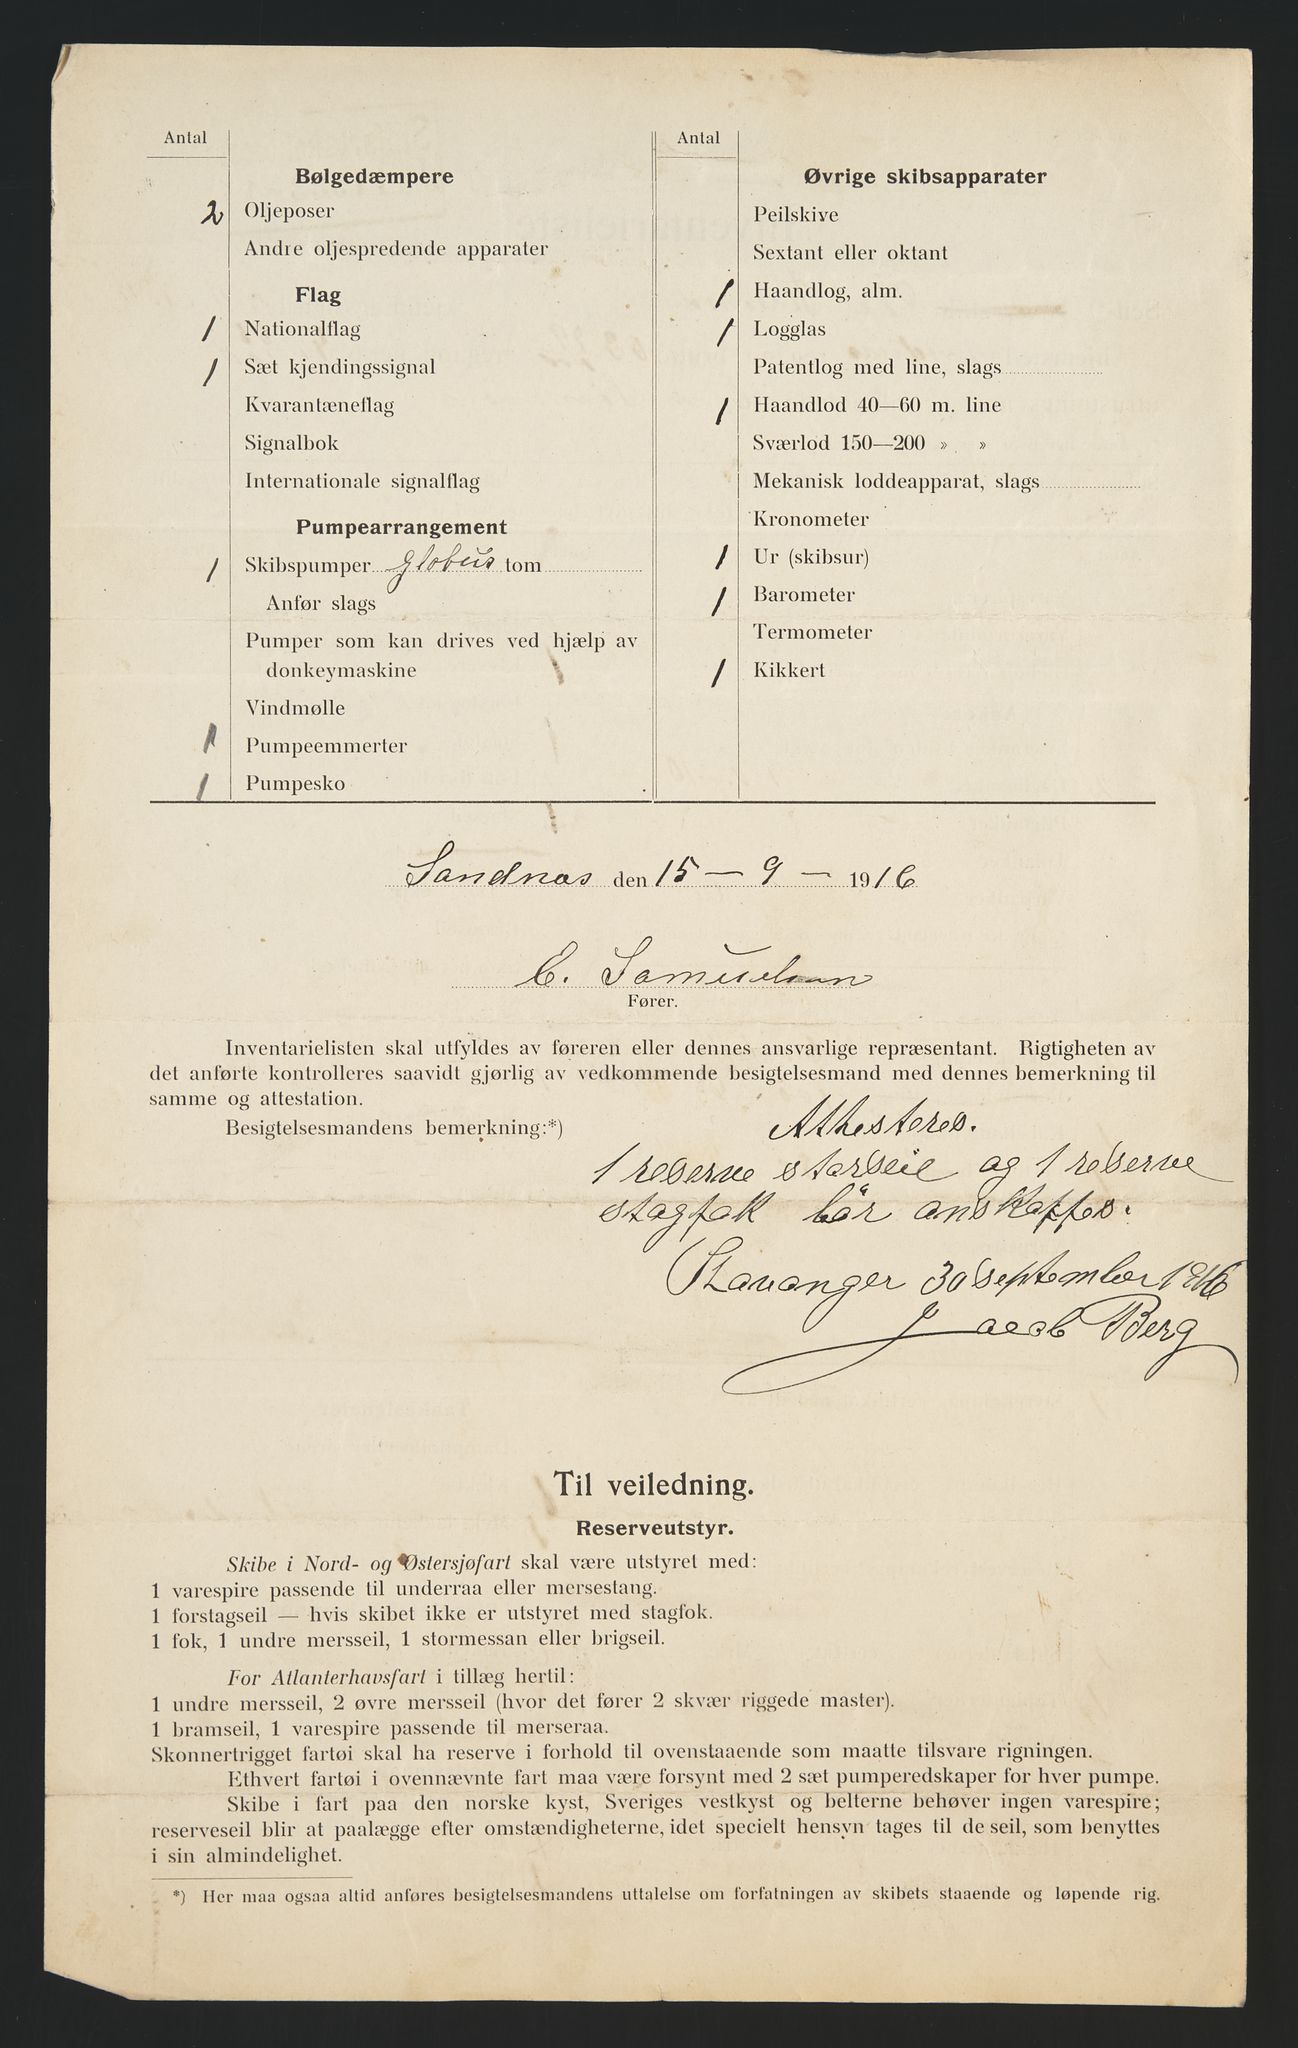 Antal
Bølgedæmpere
2 Oljeposer
Andre oljespredende apparater
Flag
1 Nationalflag
1 Sæt kjendingssignal
Kvarantæneflag
Signalbok
Internationale signalflag
Pumpearrangement
1 Skibspumper globus tom
Anfør slags
Pumper som kan drives ved hjælp av
donkeymaskine
Vindmølle
1 Pumpeemmerter
1 Pumpesko
Antal
Øvrige skibsapparater
Peilskive
Sextant eller oktant
1 Haandlog, alm.
1 Logglas
Patentlog med line, slags
1 Haandlod 40—60 m. line
Sværlod 150—200 » »
Mekanisk loddeapparat, slags
Kronometer
1 Ur (skibsur)
1 Barometer
Termometer
1 Kikkert
Sandnæs den 15 — 9 — 1916
C. Samuelsen
Fører.
Inventarielisten skal utfyldes av føreren eller dennes ansvarlige repræsentant. Rigtigheten av
det anførte kontrolleres saavidt gjørlig av vedkommende besigtelsesmand med dennes bemerkning til
samme og attestation.
Besigtelsesmandens bemerkning:*)
Athesteres.
1 reserve storseil og 1 reserve
stagfok bør anskaffes.
Stavanger 30 September 1916
Jacob Berg
Til veiledning.
Reserveutstyr.
Skibe i Nord- og Østersjøfart skal være utstyret med:
1 varespire passende til underraa eller mersestang.
1 forstagseil — hvis skibet ikke er utstyret med stagfok.
1 fok, 1 undre mersseil, 1 stormessan eller brigseil.
For Atlanterhavsfart i tillæg hertil:
1 undre mersseil, 2 øvre mersseil (hvor det fører 2 skvær riggede master).
1 bramseil, 1 varespire passende til merseraa.
Skonnertrigget fartøi skal ha reserve i forhold til ovenstaaende som maatte tilsvare rigningen.
Ethvert fartøi i ovennævnte fart maa være forsynt med 2 sæt pumperedskaper for hver pumpe.
Skibe i fart paa den norske kyst, Sveriges vestkyst og belterne behøver ingen varespire;
reserveseil blir at paalægge efter omstændigheterne, idet specielt hensyn tages til de seil, som benyttes
i sin almindelighet.
*) Her maa ogsaa altid anføres besigtelsesmandens uttalelse om forfatningen av skibets staaende og løpende rig.